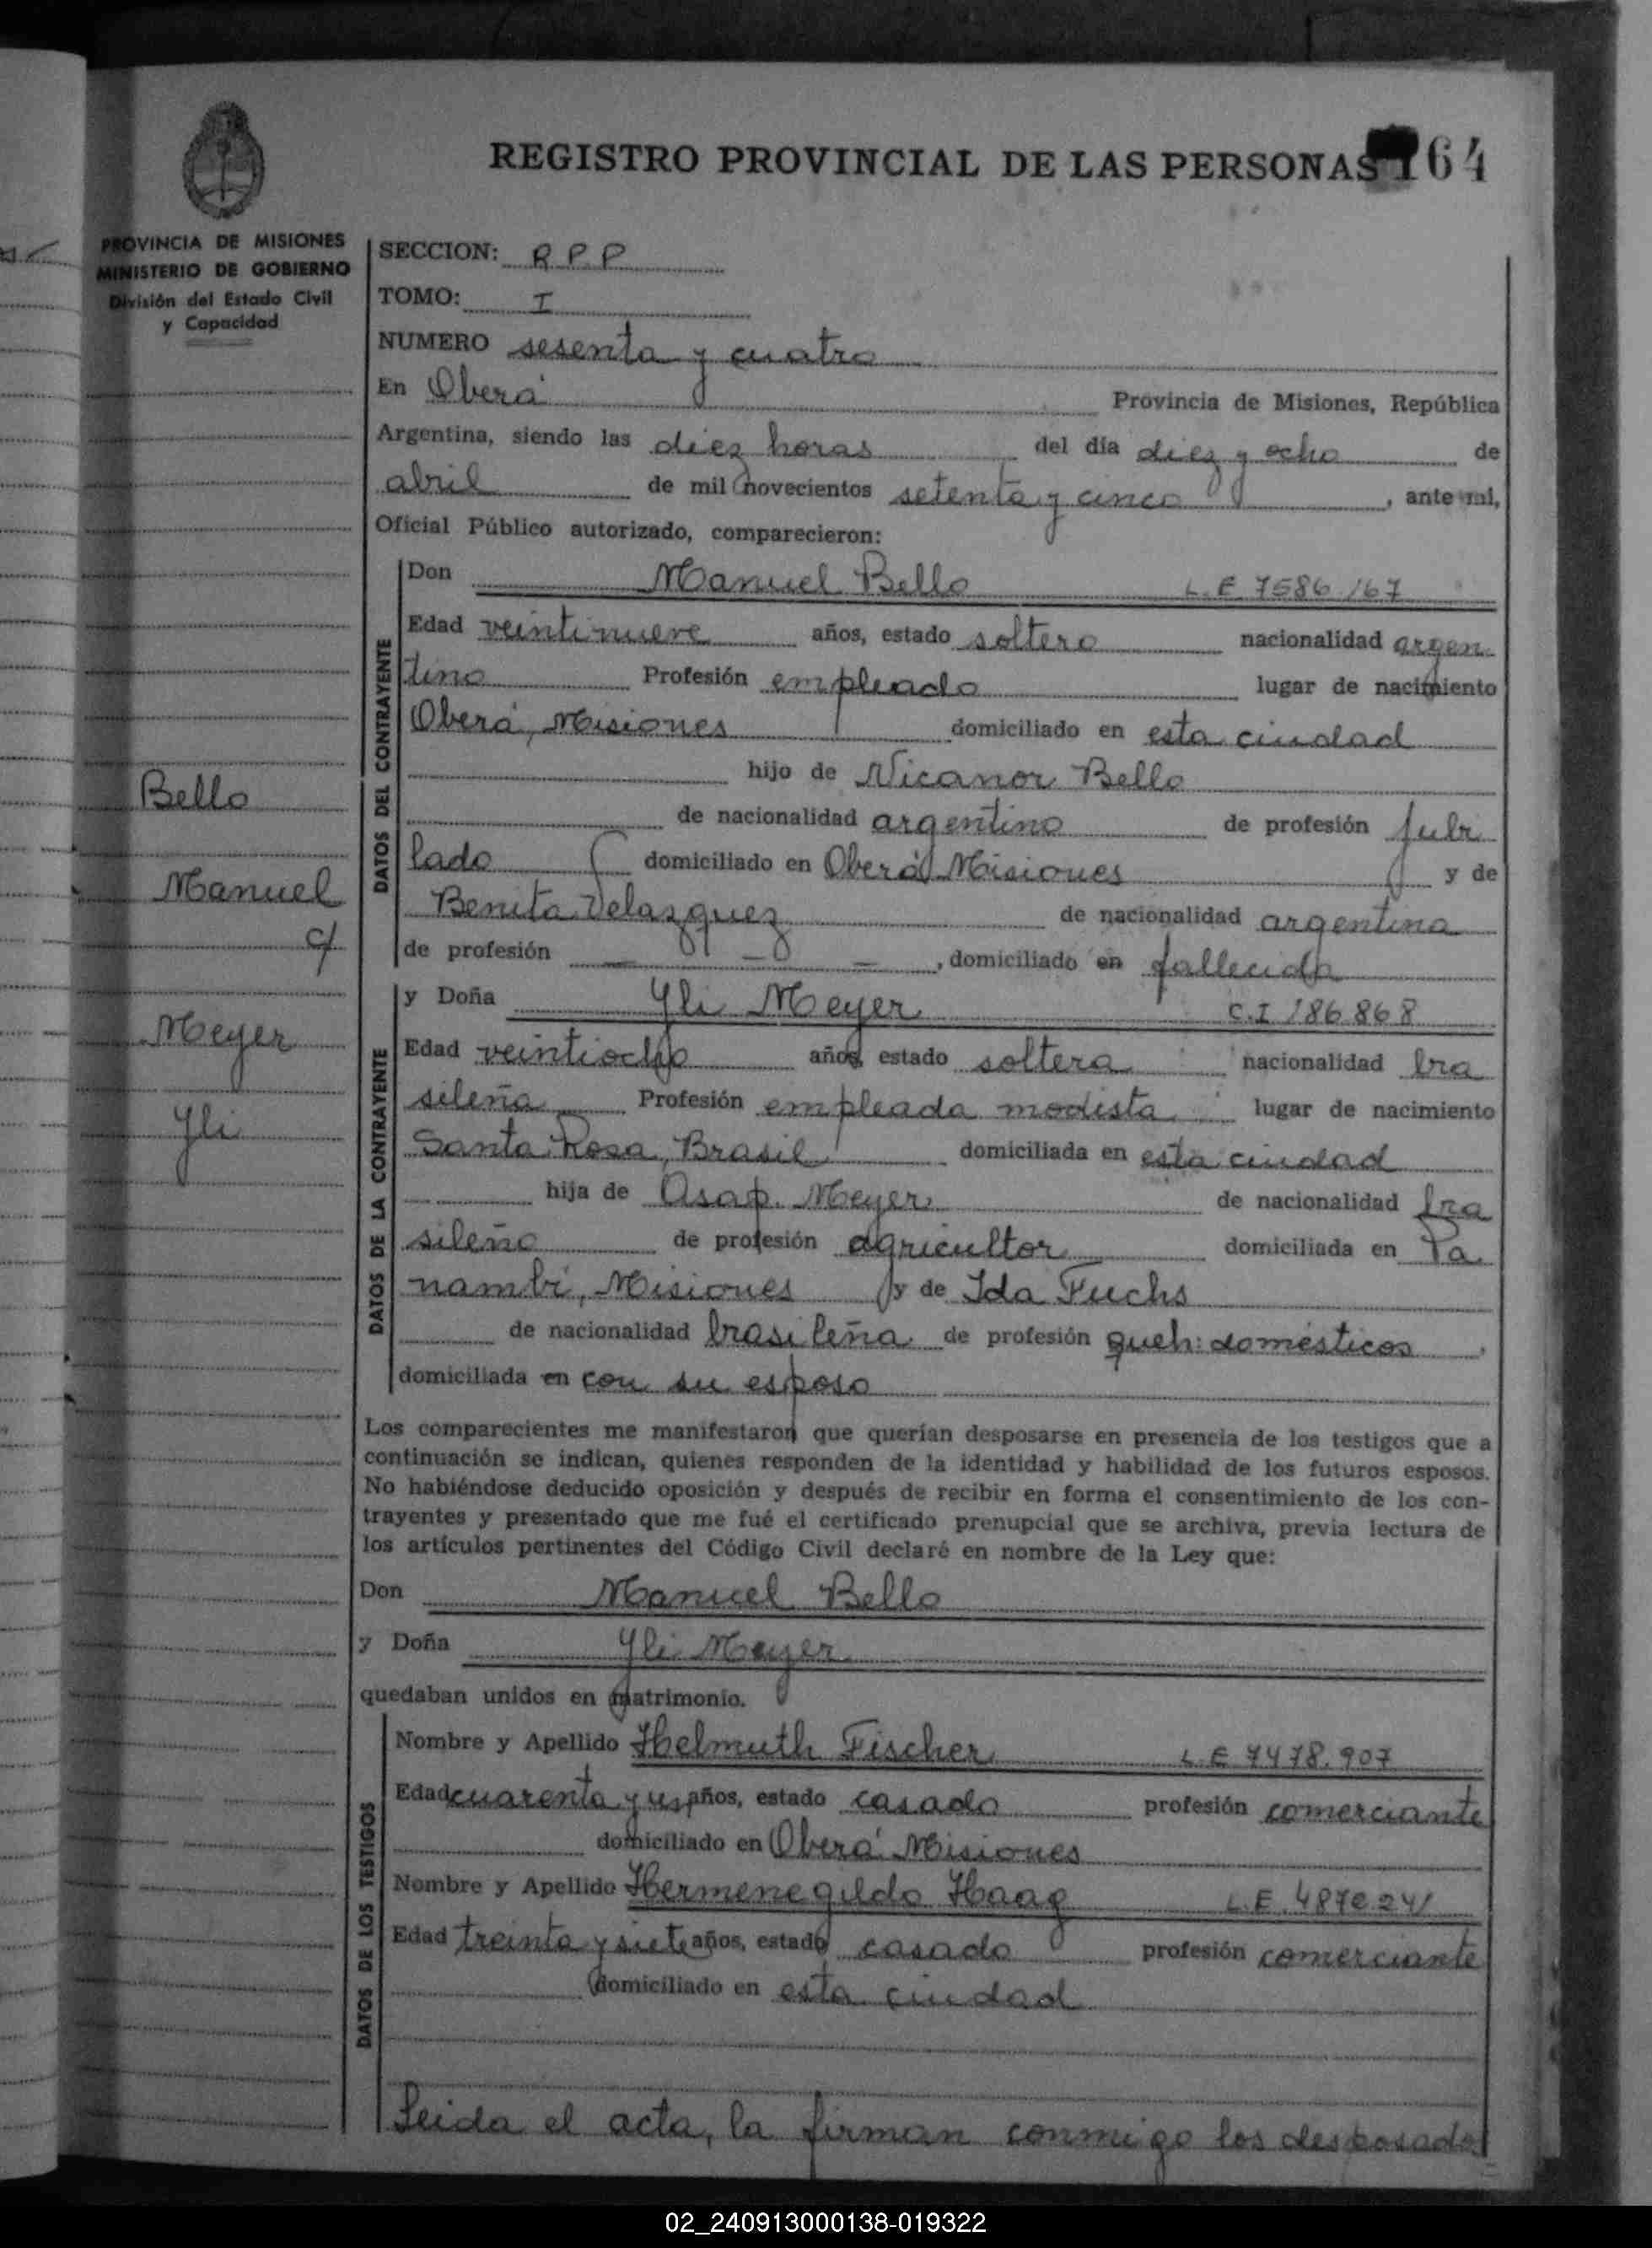 REGISTRO PROVINCIAL DE LAS PERSONAS 164
PROVINCIA DE MISIONES
MINISTERIO DE GOBIERNO
División del Estado Civil
y Capacidad
SECCION: R P P
TOMO: I
NUMERO sesenta y cuatro
En Oberá Provincia de Misiones, República
Argentina, siendo las diez horas del día diez y ocho de
abril de mil novecientos setenta y cinco, ante mí,
Oficial Público autorizado, comparecieron:
DATOS DEL CONTRAYENTE
Don Manuel Bello L.E 7586167
Edad veintinueve años, estado soltero nacionalidad argen
tino Profesión empleado lugar de nacimiento
Oberá, Misiones domiciliado en esta ciudad
hijo de Nicanor Bello
de nacionalidad argentino de profesión jubi
lado domiciliado en Oberá Misiones y de
Benita Velazquez de nacionalidad argentina
de profesión — — —, domiciliado en fallecida
Bello
Manuel
c/
Meyer
Yli
DATOS DE LA CONTRAYENTE
y Doña Yli Meyer C.I 186868
Edad veintiocho años, estado soltera nacionalidad bra
sileña Profesión empleada modista lugar de nacimiento
Santa Rosa, Brasil domiciliada en esta ciudad
hija de Asap. Meyer de nacionalidad bra
sileño de profesión agricultor domiciliada en Pa
nambí, Misiones y de Ida Fuchs
de nacionalidad brasileña de profesión queh: domésticos,
domiciliada en con su esposo
Los comparecientes me manifestaron que querían desposarse en presencia de los testigos que a
continuación se indican, quienes responden de la identidad y habilidad de los futuros esposos.
No habiéndose deducido oposición y después de recibir en forma el consentimiento de los con-
trayentes y presentado que me fué el certificado prenupcial que se archiva, previa lectura de
los artículos pertinentes del Código Civil declaré en nombre de la Ley que:
Don Manuel Bello
y Doña Yli Meyer
quedaban unidos en matrimonio.
DATOS DE LOS TESTIGOS
Nombre y Apellido Helmuth Fischer L.E 7478.907
Edad cuarenta y años, estado casado profesión comerciante
domiciliado en Oberá Misiones
Nombre y Apellido Hermenegildo Haag L.E.
Edad treinta y siete años, estado casado profesión comerciante
domiciliado en esta ciudad
Leida el acta, la firman conmigo los desposados
02_240913000138-019322